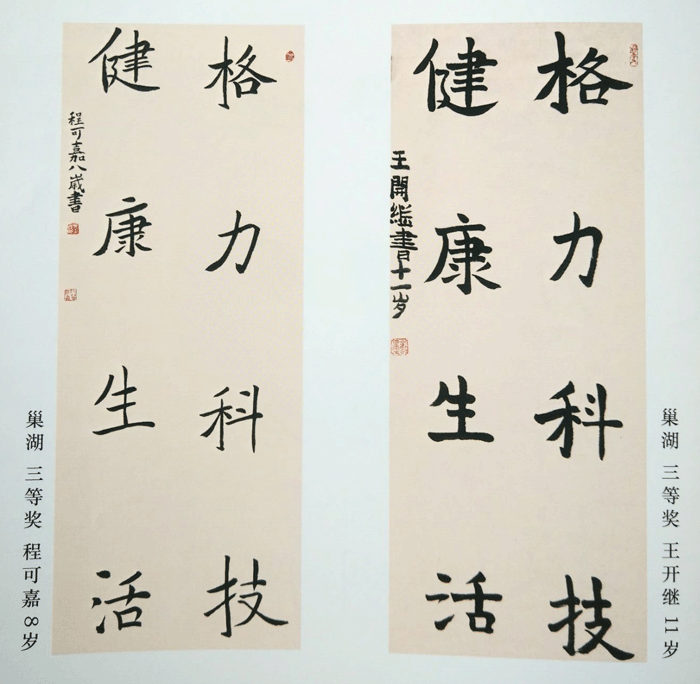 格力科技
健康生活
王開繼書十一岁
巢湖 三等奖 王开继 11岁
格力科技
健康生活
程可嘉八歲書
巢湖 三等奖 程可嘉 8岁